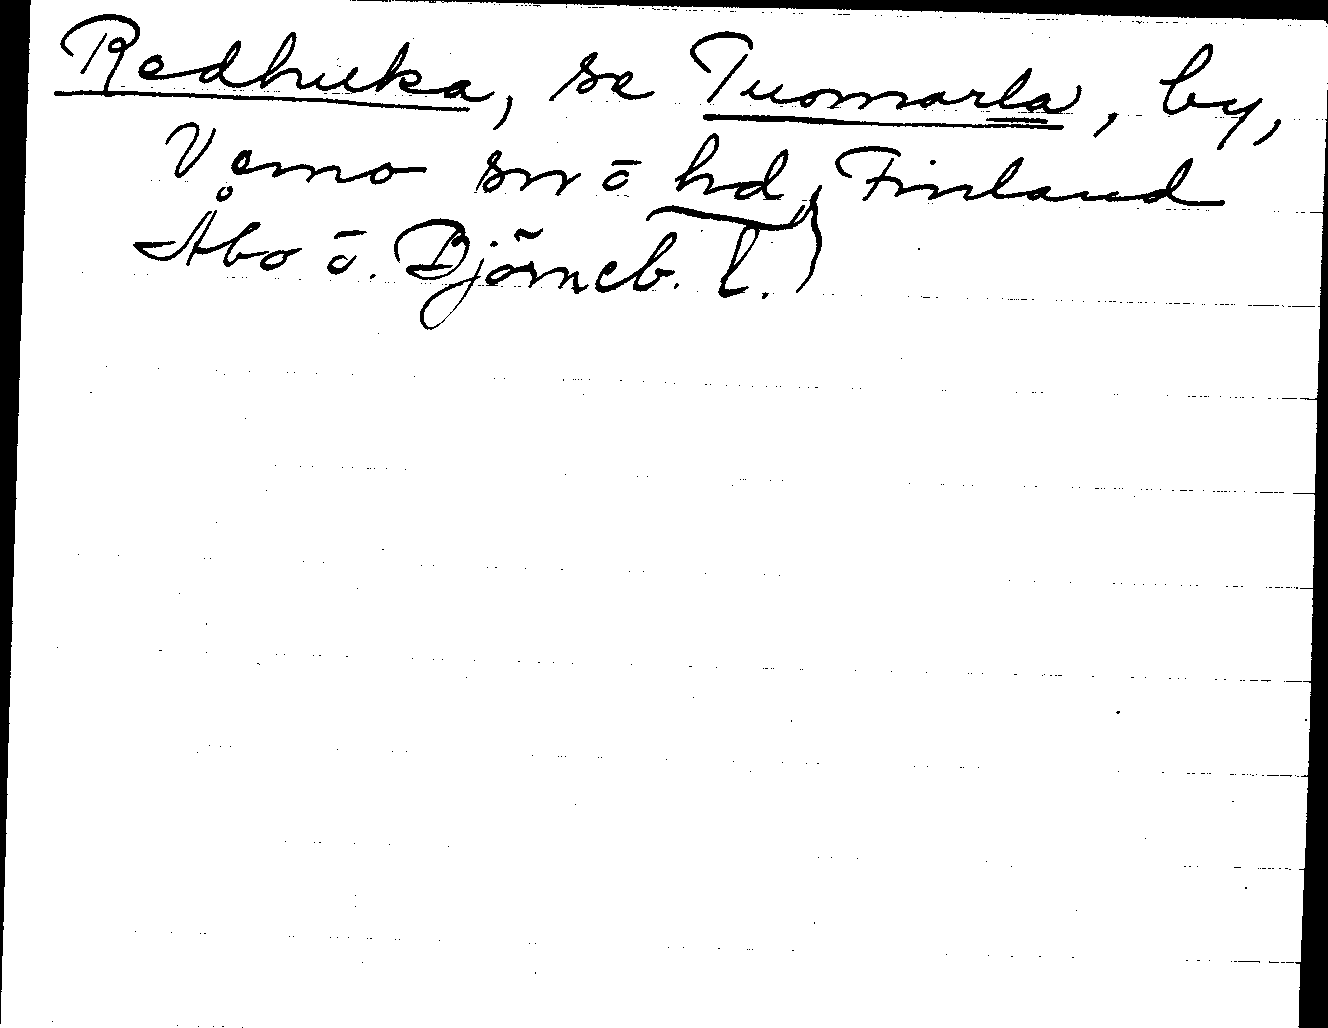 Redhuka, se Tuomarla, by,
Vemo sn ō hd, Finland
Åbo ō. Björneb. l.